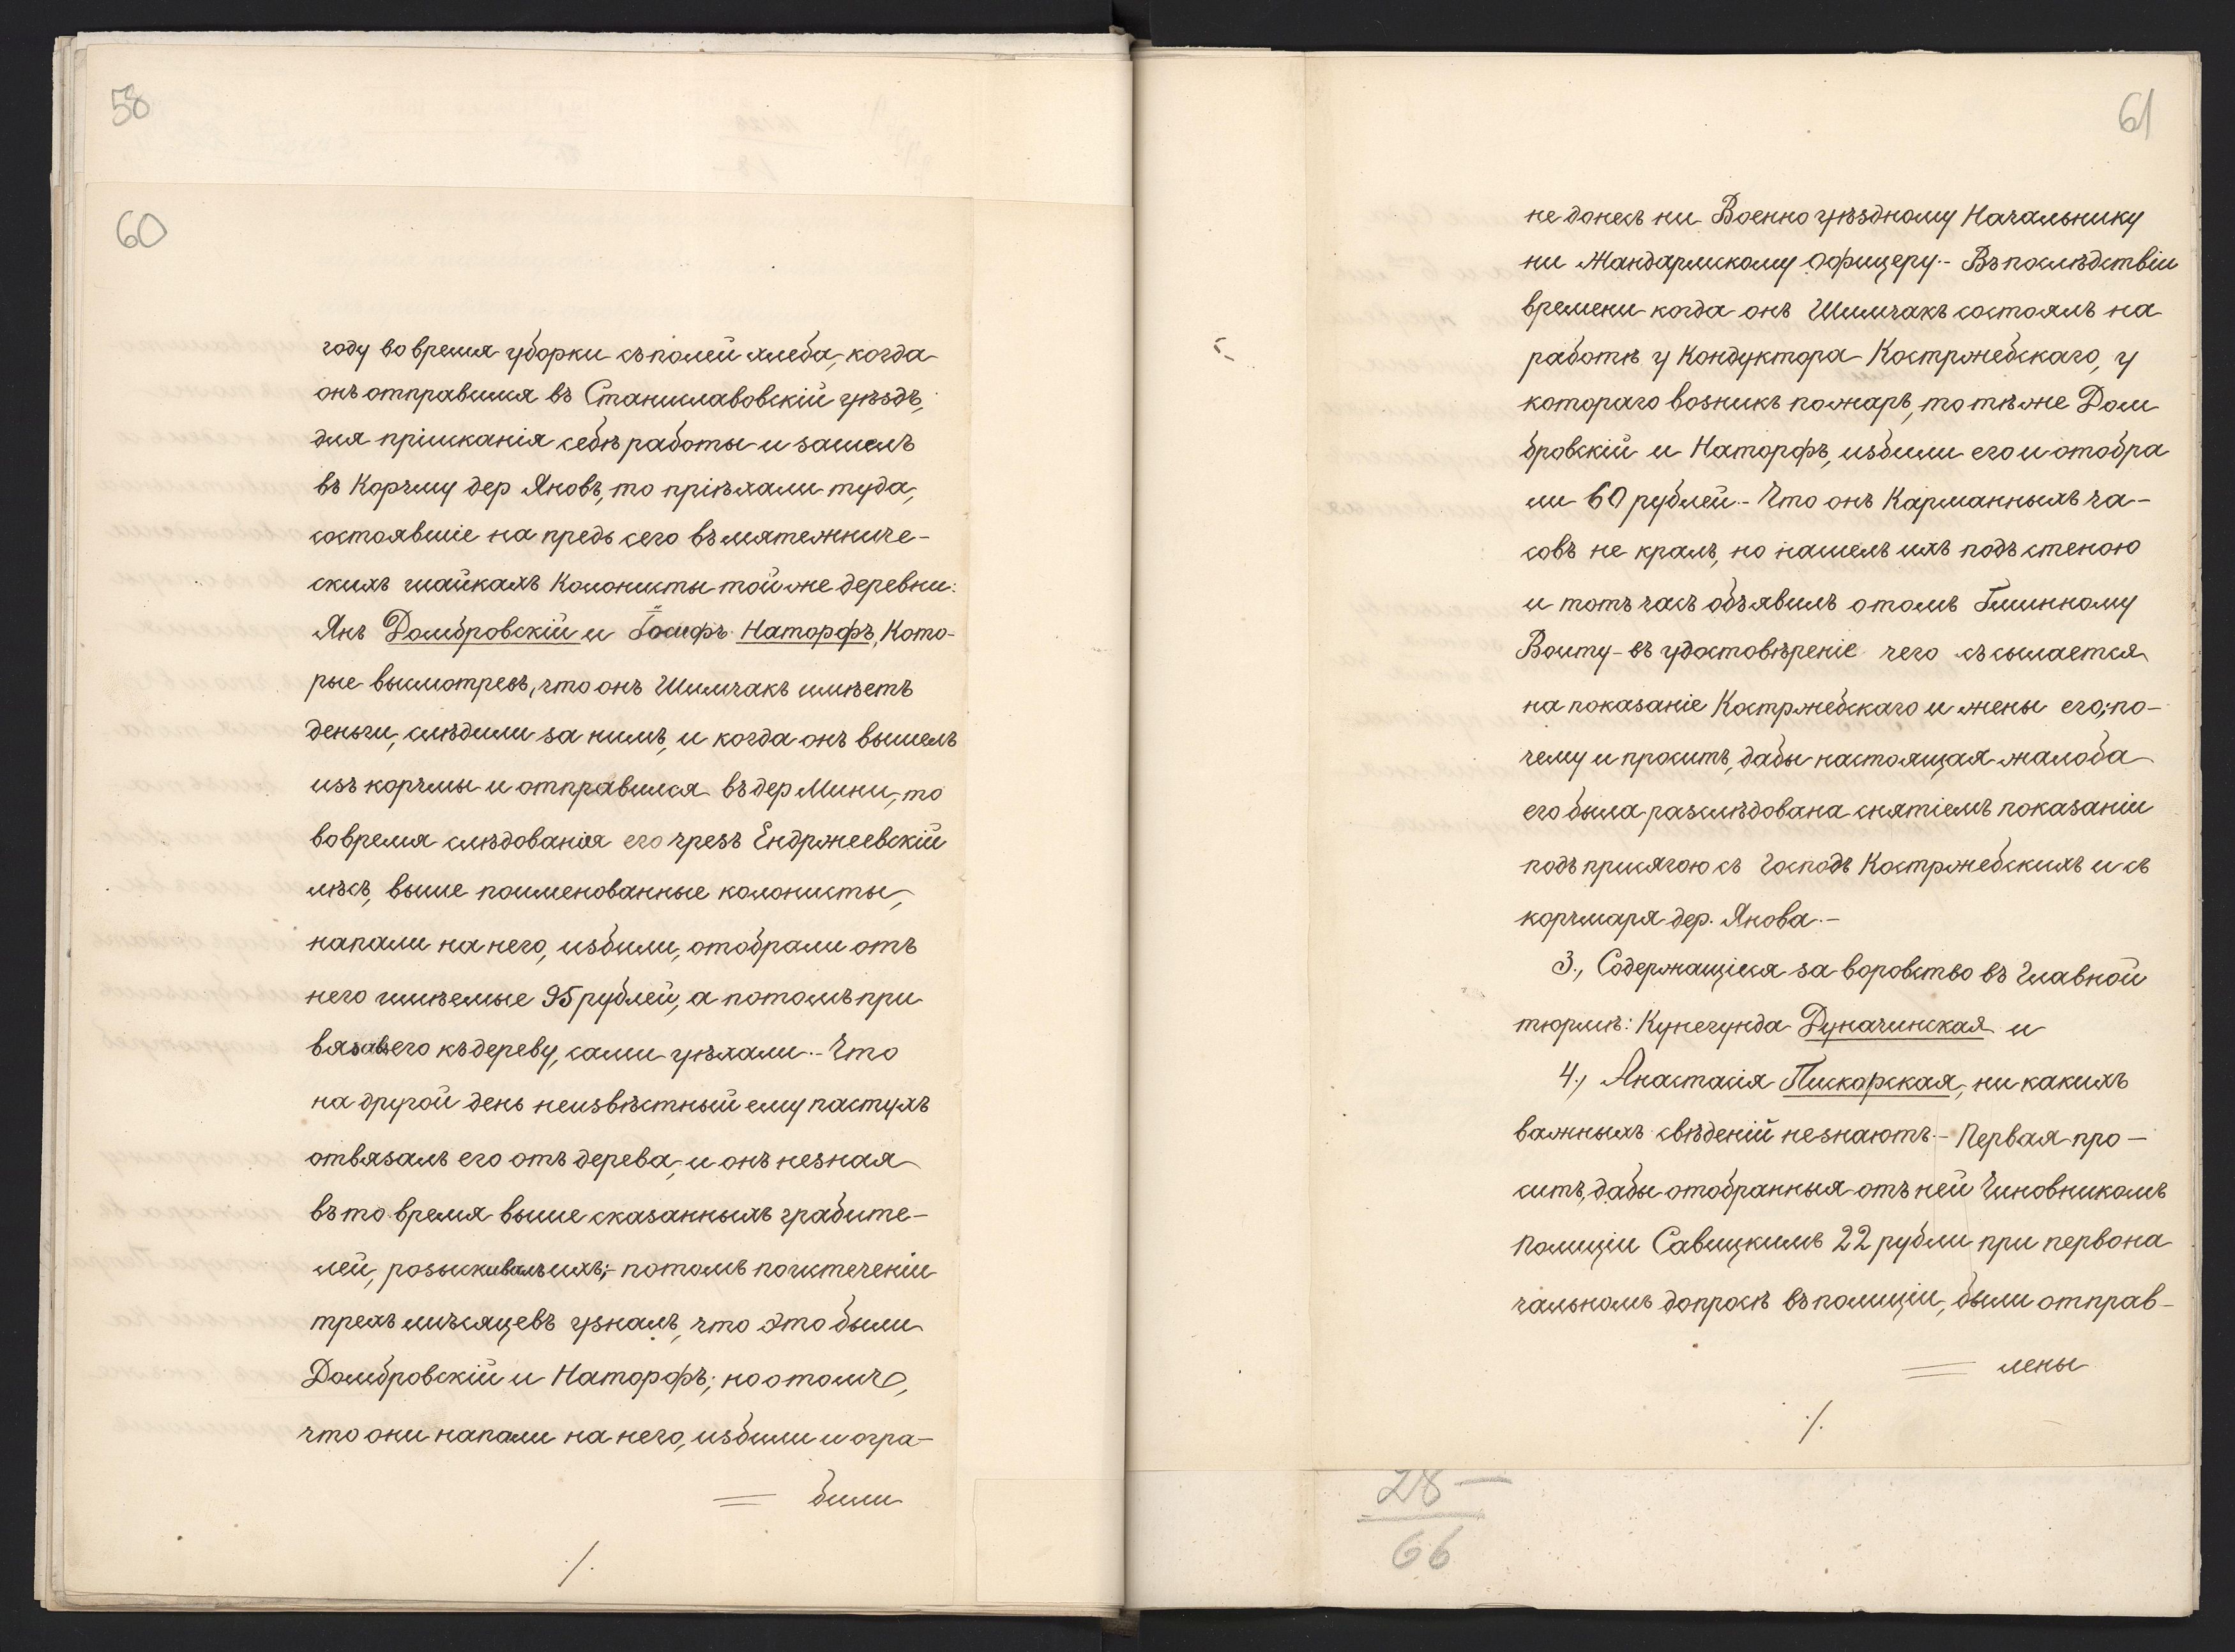 58
60
году во время уборки съ полей хлеба, когда
онъ отправился въ Станиславовскій уѣздъ,
для пріисканія себѣ работы и зашелъ
въ Корчму дер Яновъ, то пріѣхали туда,
состоявшіе на предь сего въ мятежниче-
скихъ шайкахъ Колонисты той же деревни:
Янъ Домбровскій и Іосифъ Наторфъ, Кото-
рые высмотревъ, что онъ Шимчакъ имѣетъ
деньги, слѣдили за нимъ, и когда онъ вышелъ
изъ корчмы и отправился въ дер Мини, то
во время слѣдованія его чрезъ Ендржеевскій
лѣсъ, выше поименованные колонисты,
напали на него, избили, отобрали отъ
него имѣемые 95 рублей, а потомъ при
вязавъ его къ дереву, сами уѣхали.- Что
на другой день неизвѣстный ему пастухъ
отвязалъ его отъ дерева, и онъ незная
въ то время выше сказанныхъ грабите-
лей, розыскивалъ ихъ;- потомъ поистеченіи
трехъ мѣсяцевъ узналъ, что это были
Домбровскій и Наторфъ; но о томъ,
что они напали на него, избили и огра-
= били
./.
61
не донесъ ни Военно уѣздному Начальнику
ни Жандармскому Оофицеру.- Въ послѣдствіи
времени когда онъ Шимчакъ состоялъ на
работѣ у Кондуктора Костржебскаго, у
котораго возникъ пожаръ, то тѣже Дом
бровскій и Наторфъ, избили его и отобра
ли 60 рублей.- Что онъ Карманныхъ ча-
совъ не кралъ, но нашелъ ихъ подъ стеною
и тотъ часъ объявилъ о томъ Гминному
Войту - въ удостовѣреніе чего съсылается
на показаніе Костржебскаго и жены его; по-
чему и проситъ, дабы настоящая жалоба
его была разслѣдована снятіемъ показаніи
подъ присягою съ Господъ Костржебскихъ и съ
корчмаря дер. Янова.-
3., Содержащіяся за воровство въ Главной
тюрмѣ: Кунегунда Дуначинская и
4., Анастасія Пискорская, ни какихъ
важныхъ свѣденій незнаютъ.- Первая про-
ситъ, дабы отобранныя отъ ней Чиновникомъ
Полиціи Савицкимъ 22 рубли при первона
чальномъ допросѣ въ полиціи, были отправ-
= лены
./.
28-
66